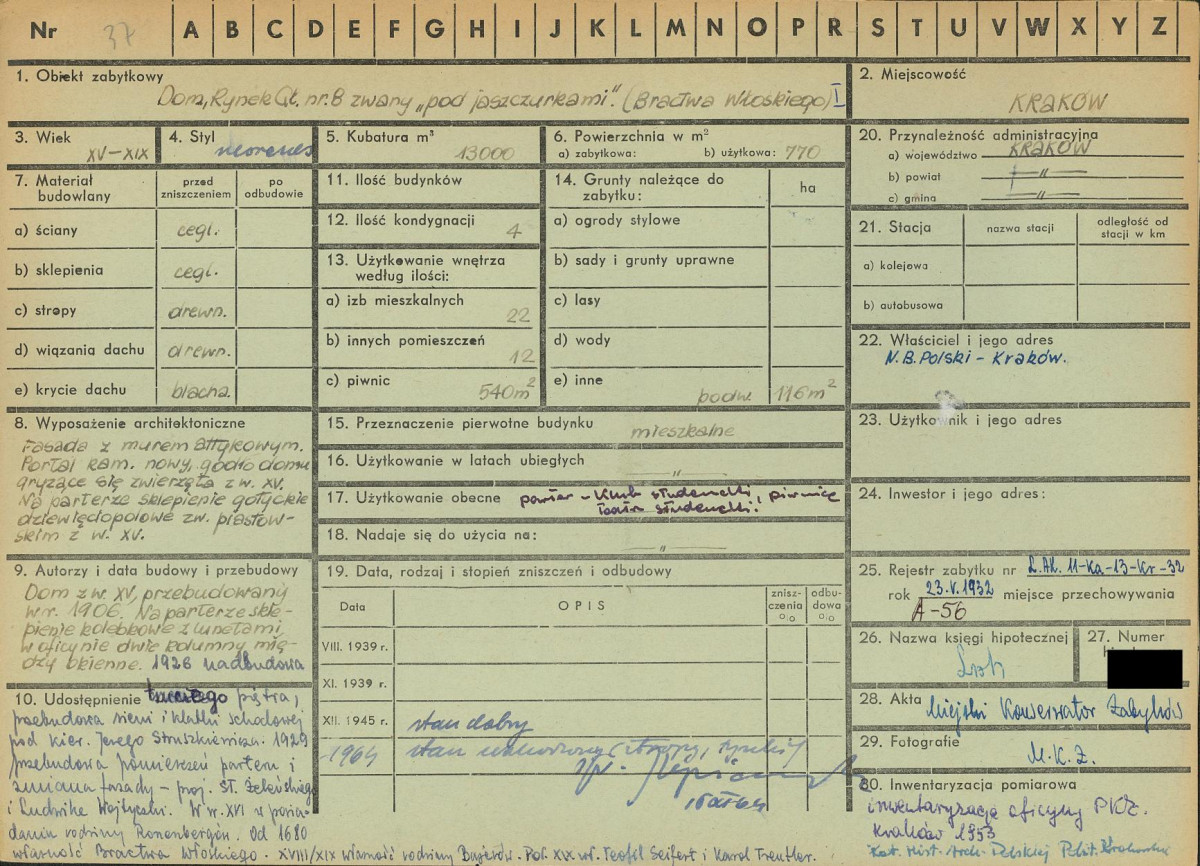 Nr 37 A B C D E F G H I J K L M N O P R S T U V W X Y Z
1. Obiekt zabytkowy
Dom, Rynek Gł. nr. 8 zwany „pod jaszczurkami". (Bractwa Włoskiego) I
2. Miejscowość
KRAKÓW
3. Wiek
XV–XIX
4. Styl
neorenes
5. Kubatura m³
13000
6. Powierzchnia w m²
a) zabytkowa: b) użytkowa: 770
20. Przynależność administracyjna
a) województwo KRAKÓW
b) powiat —„—
c) gmina —„—
7. Materiał budowlany
przed zniszczeniem
po odbudowie
a) ściany cegl.
b) sklepienia cegl.
c) stropy drewn.
d) wiązania dachu drewn.
e) krycie dachu blacha
11. Ilość budynków
12. Ilość kondygnacji 4
13. Użytkowanie wnętrza
według ilości:
a) izb mieszkalnych 22
b) innych pomieszczeń 12
c) piwnic 540m²
14. Grunty należące do
zabytku:
ha
a) ogrody stylowe
b) sady i grunty uprawne
c) lasy
d) wody
e) inne podw. 116m²
21. Stacja
nazwa stacji
odległość od
stacji w km
a) kolejowa
b) autobusowa
22. Właściciel i jego adres
N.B. Polski – Kraków.
8. Wyposażenie architektoniczne
Fasada z murem attykowym.
Portal kam. nowy, godło domu
gryzące się zwierzęta z w. XV.
Na parterze sklepienie gotyckie
dziewięciopolowe zw. piastow-
skim z w. XV.
15. Przeznaczenie pierwotne budynku mieszkalne
16. Użytkowanie w latach ubiegłych —„—
17. Użytkowanie obecne parter – Klub studencki, piwnice
teatr studencki.
18. Nadaje się do użycia na: —„—
23. Użytkownik i jego adres
24. Inwestor i jego adres:
9. Autorzy i data budowy i przebudowy
Dom z w. XV, przebudowany
w r. 1906. Na parterze skle-
pienie kolebkowe z lunetami,
w oficynie dwie kolumny mię-
dzy okienne. 1926 nadbudowa
10. Udostępnienie trzeciego piętra,
przebudowa sieni i klatki schodowej
pod kier. Jerzego Struszkiewicza. 1929
przebudowa pomieszczeń parteru i
zmiana fasady – proj. St. Żeleńskiego
i Ludwika Wojtyczki. W w. XVI w posia-
daniu rodziny Ronenbergów. Od 1680
własność Bractwa Włoskiego. XVIII/XIX własność rodziny Bajerów. Poł. XIX wł. Teofil Seifert i Karol Treutler.
19. Data, rodzaj i stopień zniszczeń i odbudowy
Data
OPIS
zniszczenia %
odbudowa %
VIII. 1939 r.
XI. 1939 r.
XII. 1945 r. stan dobry
1964 stan
25. Rejestr zabytku nr L.AK. 11-Ka-13-Kr-32
rok 23.V.1932 miejsce przechowywania
A-56
26. Nazwa księgi hipotecznej
27. Numer
28. Akta Miejski Konserwator Zabytków
29. Fotografie
M.K.Z.
30. Inwentaryzacja pomiarowa
inwentaryzacja oficyny PKZ.
Kraków 1953
Kat. Hist. Arch. Polskiej Polit. Krakowska